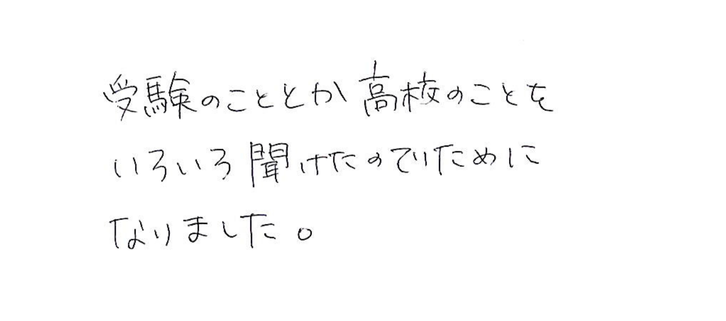 受験のこととか高校のことを
いろいろ聞けたのでためにに
なりました。